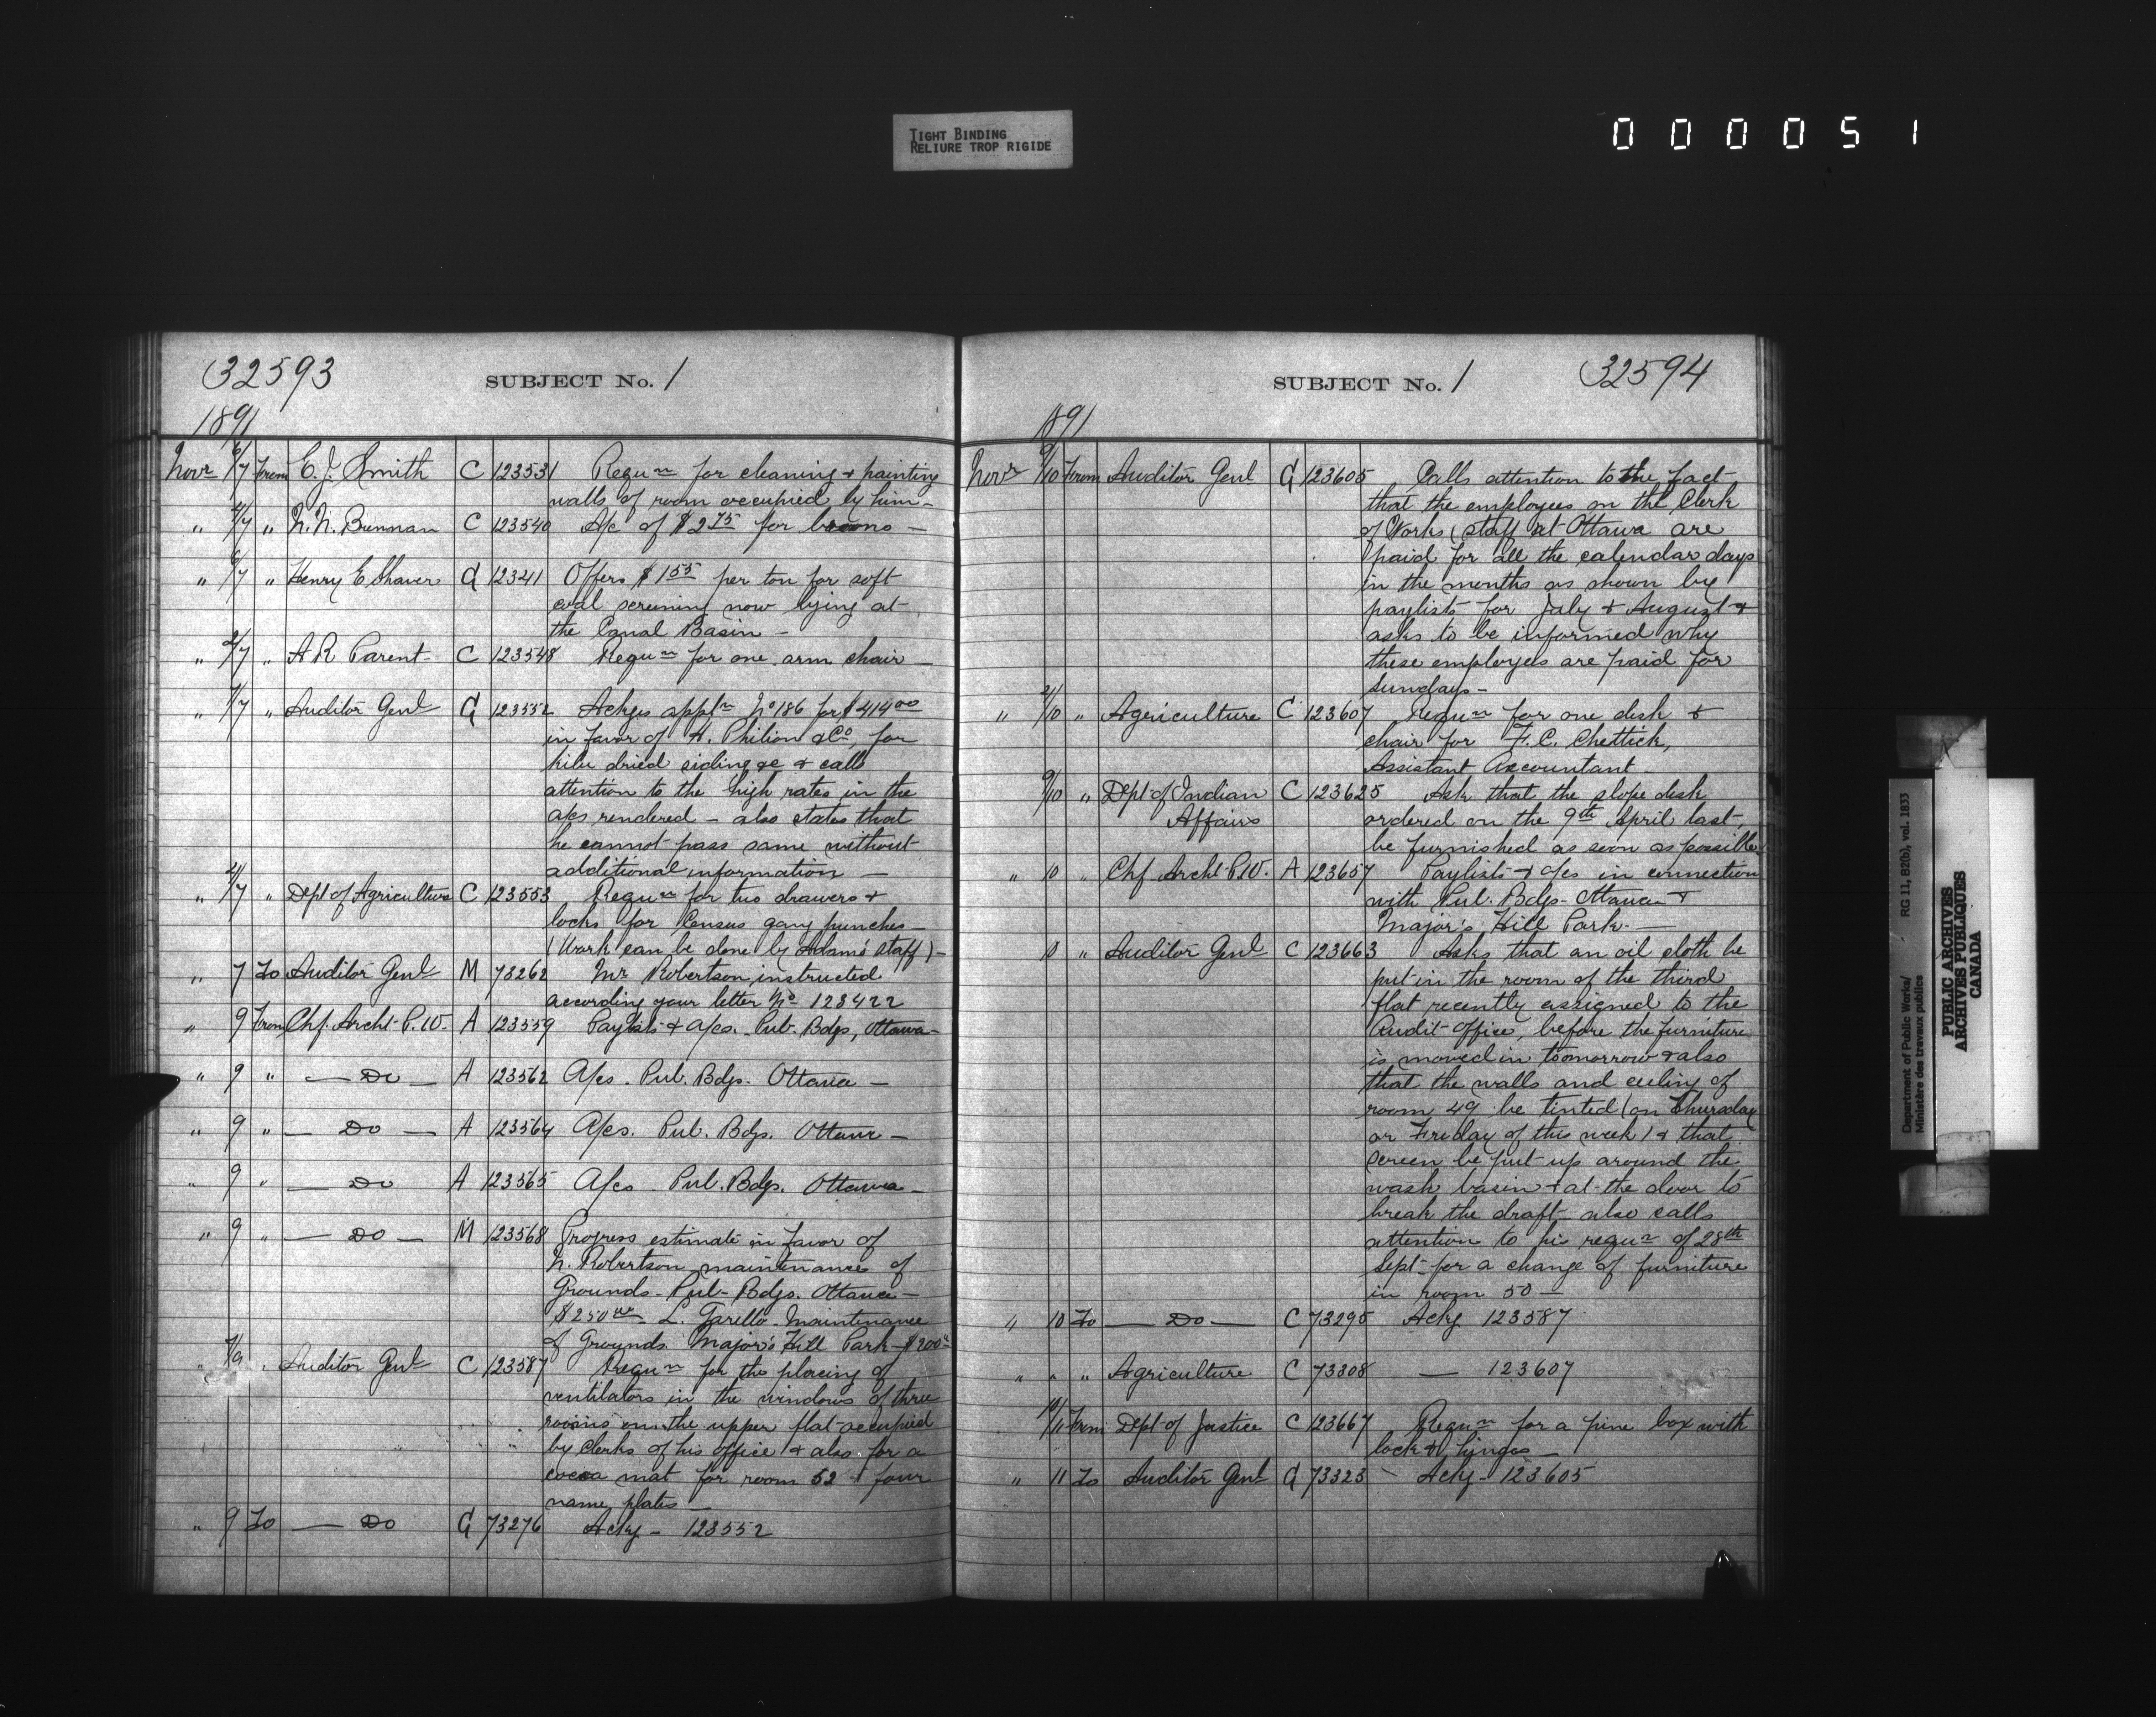 TIGHT BINDING
RELIURE TROP RIGIDE
0 0 0 0 5 1
32593
SUBJECT No. 1
1891
Novr 6/7 From C. J. Smith C 123531 Requn for cleaning & painting
walls of room occupied by him -
" 4/7 " N. N. Brennan C 123540 A/c of $2 75 for brooms -
" 6/7 " Henry E. Shaver G 12341 Offers $1 55 per ton for soft
coal screening now lying at
the Canal Basin -
" 2/7 " A R Parent C 123548 Requn for one arm chair -
" 7/7 " Auditor Genl G 123552 Ackges appln No 186 for $414 00
in favor of H. Philion & Co, for
kiln dried siding &c & calls
attention to the high rates in the
a/cs rendered - also states that
he cannot pass same without
additional information -
" 4/7 " Dept of Agriculture C 123553 Requn for two drawers &
locks for Census gang punches -
(Work can be done by Adams staff) -
" 7 To Auditor Genl M 73262 Mr Robertson instructed
according your letter No 123422
" 9 From Chf. Archt P.W. A 123559 Paylists & a/cs. Pub. Bdgs, Ottawa -
" 9 " - Do - A 123562 A/cs. Pub. Bdgs. Ottawa -
" 9 " - Do - A 123564 A/cs. Pub. Bdgs. Ottawa -
" 9 " - Do A 123565 A/cs - Pub. Bdgs. Ottawa -
" 9 " - Do - M 123568 Progress estimate in favor of
N. Robertson maintenance of
Grounds - Pub - Bdgs. Ottawa -
$250 00 L. Garello - Maintenance
of Grounds. Major's Hill Park - $200
" 7/9 " Auditor Genl C 123587 Requn for the placing of
ventilators in the windows of three
rooms on the upper flat occupied
by clerks of his office & also for a
cocoa mat for room 52 & four
name plates -
" 9 To - Do G 73276 Ackg - 123552
SUBJECT No. 1
32594
1891
Novr 9/10 From Auditor Genl G 123605 Calls attention to the fact
that the employees on the Clerk
of Works staff at Ottawa are
paid for all the calendar days
in the months as shown by
paylists for July & August &
asks to be informed why
these employees are paid for
Sundays -
" /10 " Agriculture C 123607 Requn for one desk &
chair for F. C. Chittick,
Assistant Accountant -
9/10 " Dept of Indian Affairs C 123625 Ask that the slope desk
ordered on the 9th April last
be furnished as soon as possible
" 10 " Chf Archt P.W. A 123657 Paylists & a/cs in connection
with Pub. Bdgs - Ottawa &
Major's Hill Park. -
10 " Auditor Genl C 123663 Asks that an oil cloth be
put in the room of the third
flat recently assigned to the
Audit Office, before the furniture
is moved in tomorrow & also
that the walls and ceiling of
room 49 be tinted (on Thursday
or Friday of this week) & that
screen be put up around the
wash basin & at the door to
break the draft also calls
attention to his requn of 28th
Sept - for a change of furniture
in room 50 -
" 10 To - Do - C 73295 Ackg 123587
" " " Agriculture C 73308 - 123607
10/11 From Dept of Justice C 123667 Requn for a pine box with
lock & hinges -
" 11 To Auditor Genl G 73323 - Ackg - 123605
Department of Public Works/
Ministère des travaux publics
RG 11, B2(b), vol. 1833
PUBLIC ARCHIVES
ARCHIVES PUBLIQUES
CANADA